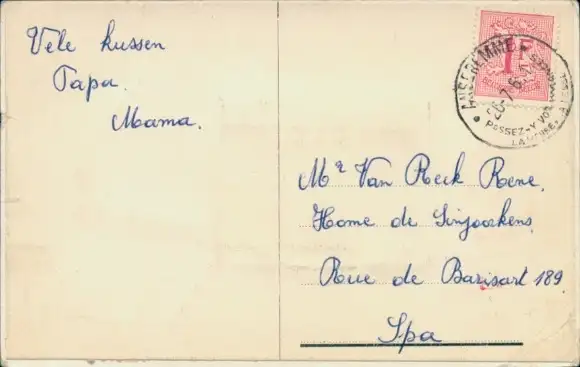 Vele kussen
Papa.
Mama.
1F
ANSEREMME
PASSEZ-Y VOS
Mr Van Reck Rene,
Home de Sinjoorkens,
Rue de Barisart 189.
Spa